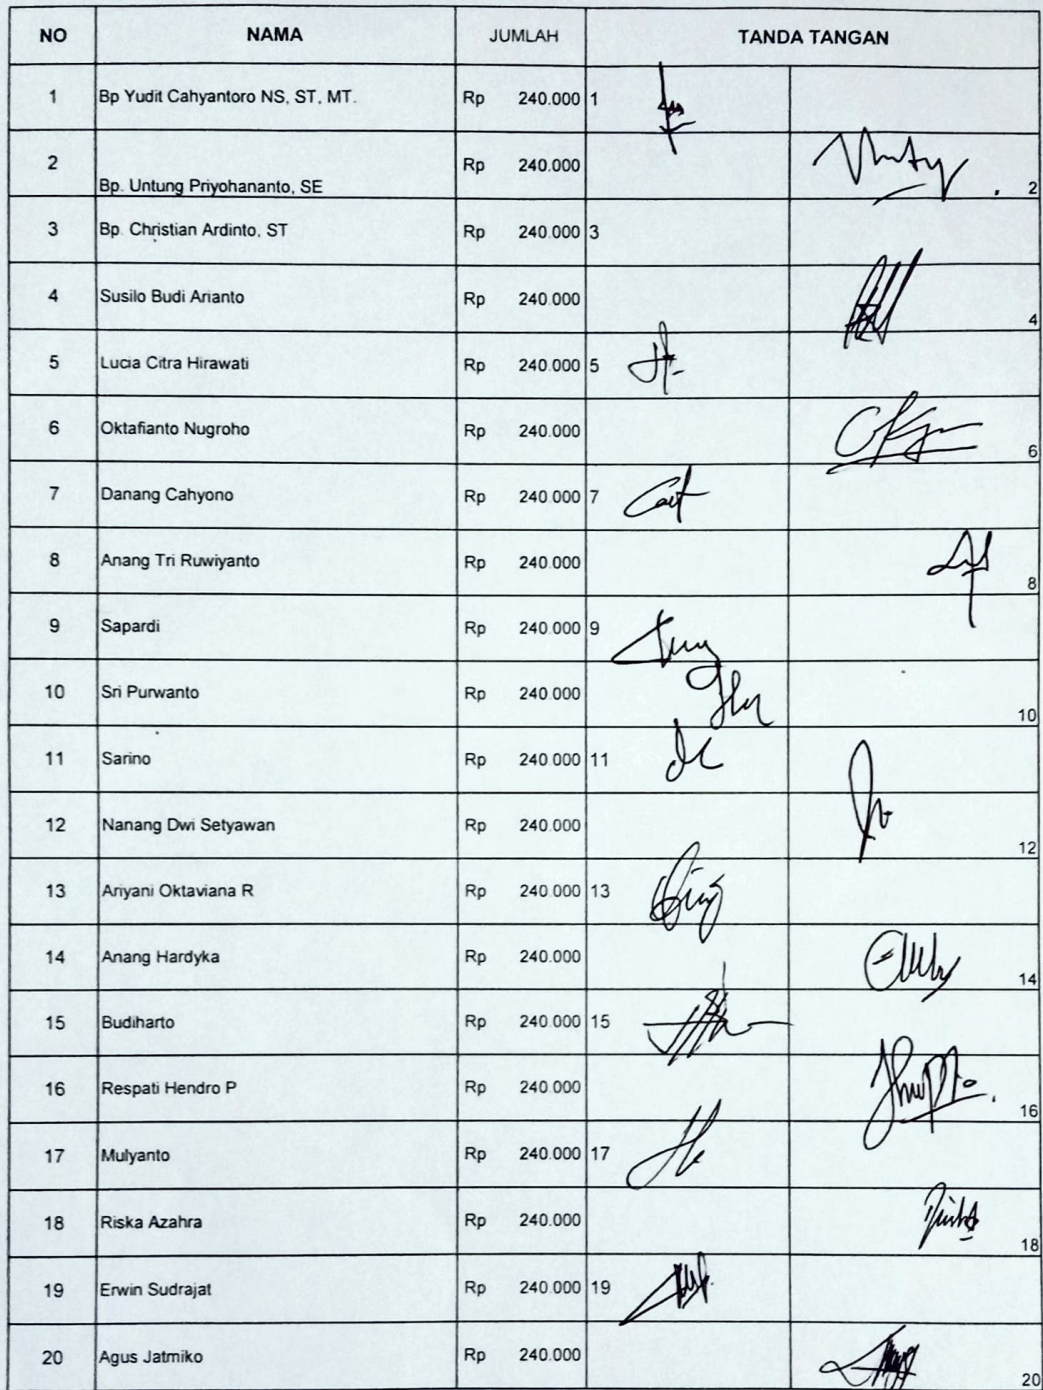 NO NAMA JUMLAH TANDA TANGAN
1 Bp Yudit Cahyantoro NS, ST, MT. Rp 240.000 1
2 Bp. Untung Priyohananto, SE Rp 240.000 2
3 Bp. Christian Ardinto, ST Rp 240.000 3
4 Susilo Budi Arianto Rp 240.000 4
5 Lucia Citra Hirawati Rp 240.000 5
6 Oktafianto Nugroho Rp 240.000 6
7 Danang Cahyono Rp 240.000 7
8 Anang Tri Ruwiyanto Rp 240.000 8
9 Sapardi Rp 240.000 9
10 Sri Purwanto Rp 240.000 10
11 Sarino Rp 240.000 11
12 Nanang Dwi Setyawan Rp 240.000 12
13 Ariyani Oktaviana R Rp 240.000 13
14 Anang Hardyka Rp 240.000 14
15 Budiharto Rp 240.000 15
16 Respati Hendro P Rp 240.000 16
17 Mulyanto Rp 240.000 17
18 Riska Azahra Rp 240.000 18
19 Erwin Sudrajat Rp 240.000 19
20 Agus Jatmiko Rp 240.000 20